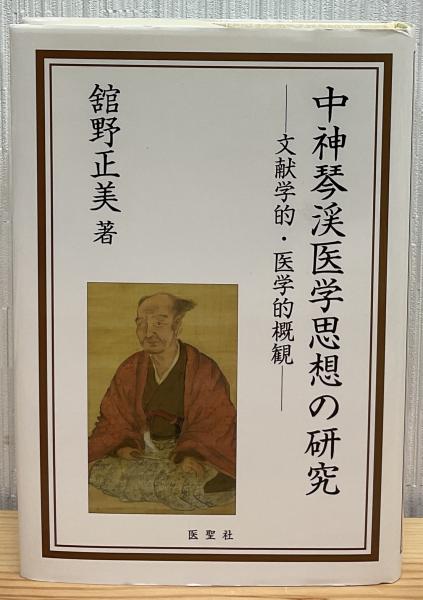 中神琴渓医学思想の研究
──文献学的・医学的概観──
舘野正美 著
医聖社